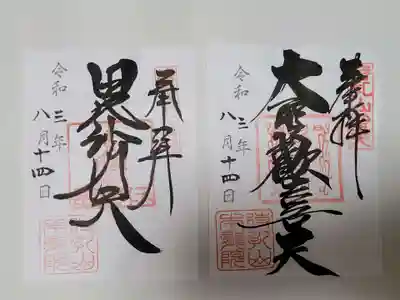 奉拝
大聖歡喜天
令和三年
八月十四日
奉拝
毘沙門天
令和三年
八月十四日